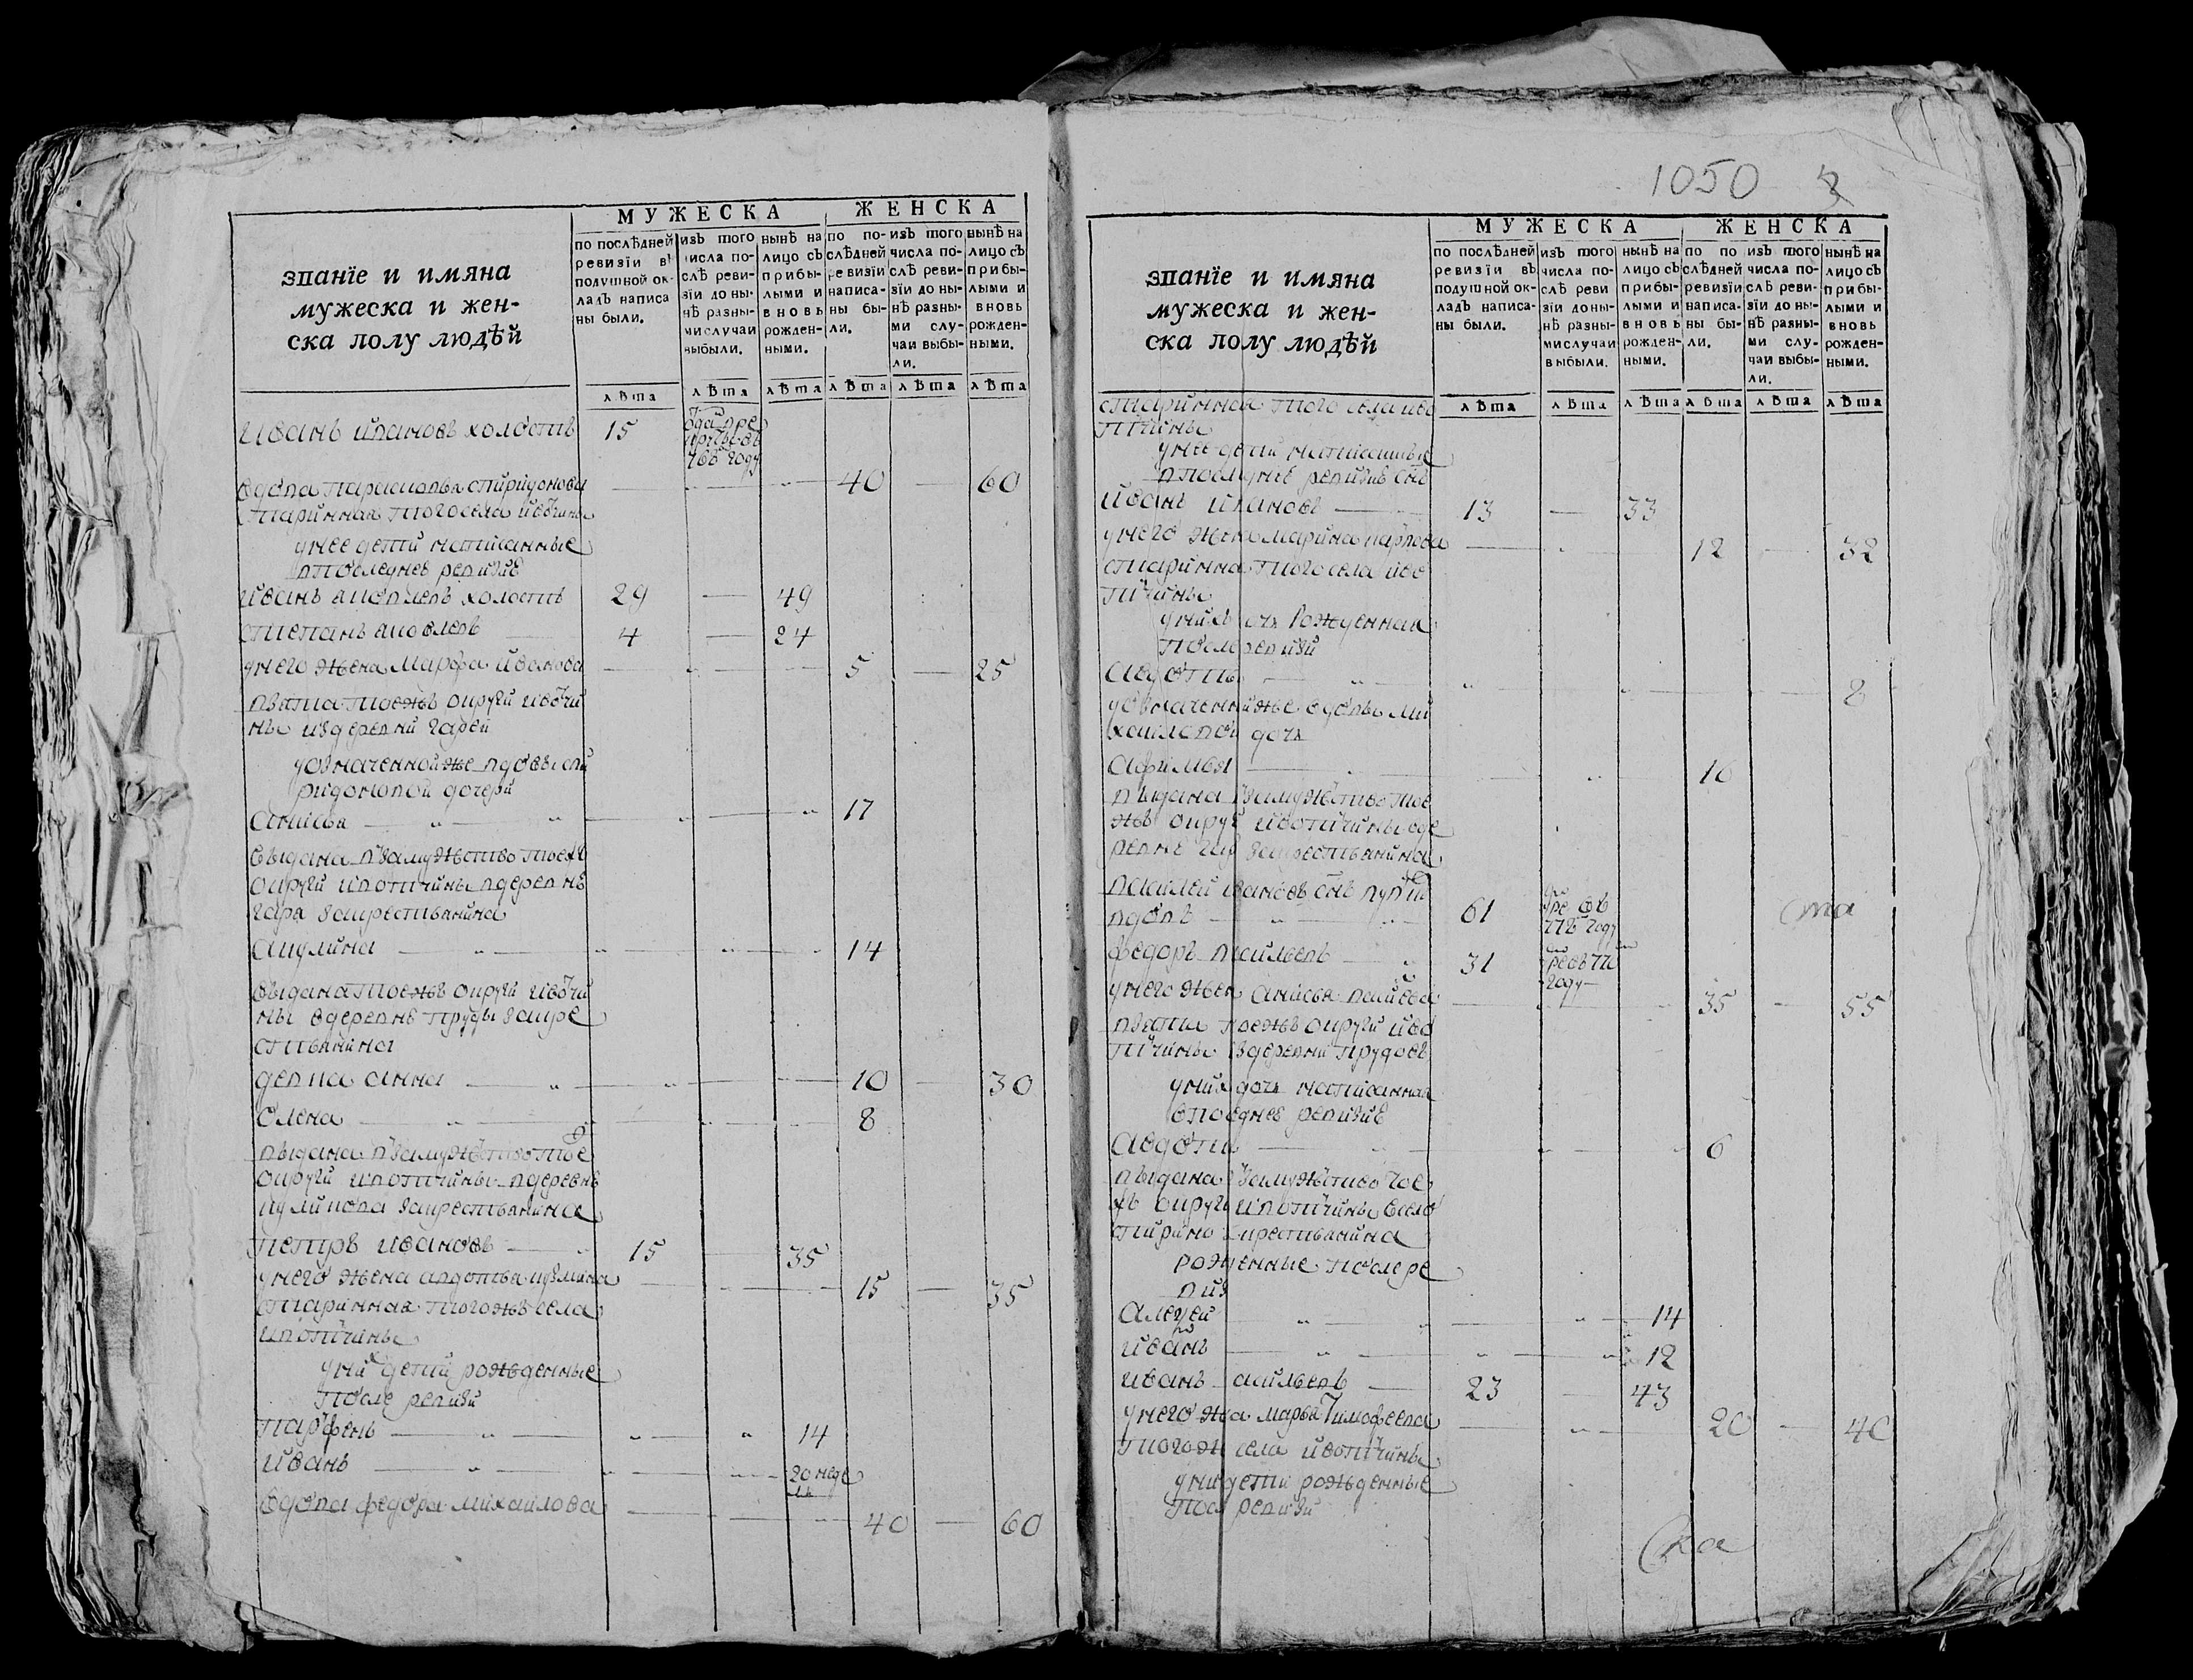 МУЖЕСКА ЖЕНСКА
званїе и имяна мужеска и женска полу людѣй
по послѣдней ревизїи въ подушной окладъ написаны были.
изъ того числа послѣ ревизїи до нынѣ разными случаи выбыли.
нынѣ на лицо съ прибылыми и вновь рожденными.
по послѣдней ревизїи написаны были.
изъ того числа послѣ ревизїи до нынѣ разными случаи выбыли.
нынѣ на лицо съ прибылыми и вновь рожденными.
лѣта лѣта лѣта лѣта лѣта лѣта
иванъ ивановъ холостъ 15
году
вдова парасковья спиридонова 40 60
старинная того села ивотчины
унее дети написанные
впоследнеѣ ревизиѣ
иванъ яковлевъ холостъ 29 49
степанъ яковлевъ 4 24
унего жена марфа иванова 5 25
взята тоежъ округи ивотчи
ны издеревни гарей
уозначеннойже вдовы спи
ридоновой дочери
анисья 17
выдана взамужство тоежъ
округи ивотчины вдеревнѣ
гаря закрестьянина
акулина 14
выдана тоежъ округи ивотчи
ны вдеревнѣ пруды закре
стьянина
девка анна 10 30
олена 8
выдана взамужство тоеж
округи ивотчины вдеревнѣ
куликова закрестьянина
петръ ивановъ 15 35
унего жена авдотья кузмина 15 35
старинная тогожъ села
ивотчины
уних дети рожденные
после ревизи
парфенъ 14
иванъ 20 недель
вдова федора михаилова 40 60
1050
МУЖЕСКА ЖЕНСКА
званїе и имяна мужеска и женска полу людѣй
по послѣдней ревизїи въ подушной окладъ написаны были.
изъ того числа послѣ ревизїи до нынѣ разными случаи выбыли.
нынѣ на лицо съ прибылыми и вновь рожденными.
по послѣдней ревизїи написаны были.
изъ того числа послѣ ревизїи до нынѣ разными случаи выбыли.
нынѣ на лицо съ прибылыми и вновь рожденными.
лѣта лѣта лѣта лѣта лѣта лѣта
старинная того села иво
тчины
унее дети написанные
впоследнеѣ ревизиѣ
иванъ ивановъ 13 33
унего жена марина карпова 12 32
старинна того села иво
тчины
уних дочь рожденная
после ревизи
авдотья 8
уозначеннойже вдовы ми
хаиловой дочь
афимья 16
выдана взамужство тое
жъ округи ивотчины вде
ревнѣ закрестьянина
василей ивановъ снъ
вдовъ 61 году
федоръ васильевъ 31 году
унего жена анисья 35 55
взята тоежъ округи иво
тчины издеревни прудовъ
уних дочь написанная
впоследнеѣ ревизиѣ
авдотья 6
выдана взамужство тое
жъ округи ивотчины всело
закрестьянина
рожденные после ре
визи
алексей 14
иванъ 12
иванъ васильевъ 23 43
унего жена марья тимофеева 20 40
тогожъ села ивотчины
уних дети рожденные
после ревизи